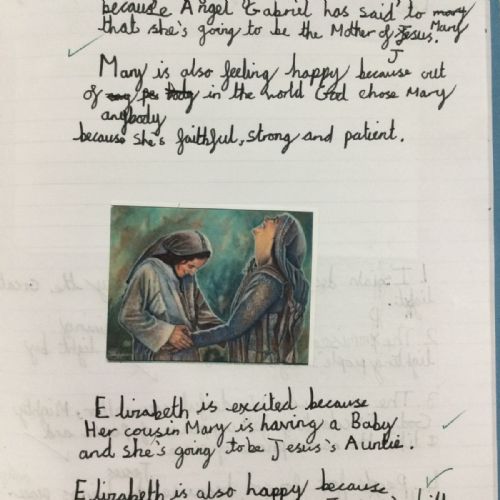 because Angel Gabriel has said to mary Mary
that she's going to be the Mother of Jesus.
J
Mary is also feeling happy because out
of in the world God chose Mary
anybody
because she's faithful, strong and patient.
Elizabeth is excited because
Her cousin Mary is having a Baby
and she's going to be Jesus's Auntie.
Elizabeth is also happy because